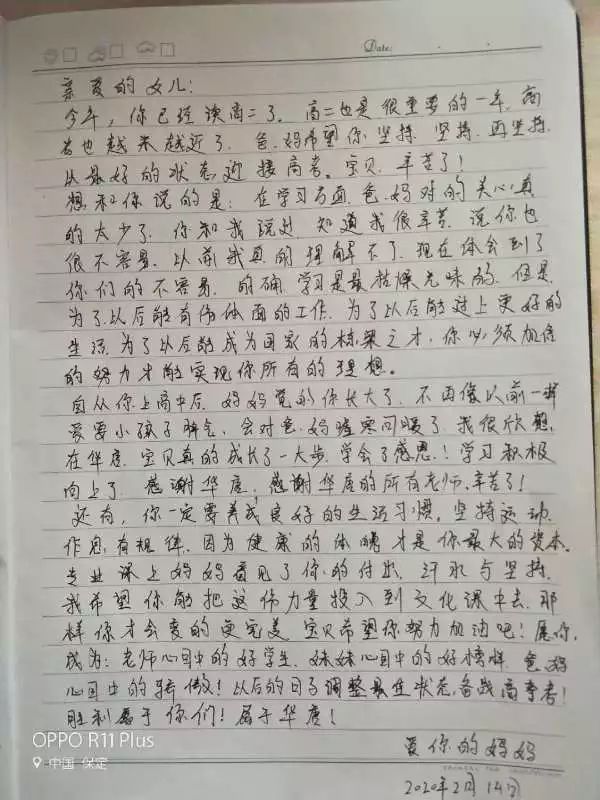 Date:
亲爱的女儿：
今年，你已经读高二了。高二也是很重要的一年，高
考也越来越近了，爸.妈希望你坚持.坚持.再坚持.
以最好的状态迎接高考。宝贝，辛苦了！
想和你说的是：在学习方面，爸.妈对的关心真
的太少了，你和我说过，知道我很辛苦，说你也
很不容易，以前我真的理解不了，现在体会到了
你们的不容易，的确，学习是最枯燥无味的，但是，
为了以后能有份体面的工作，为了以后能过上更好的
生活，为了以后能成为国家的栋梁之才，你必须加倍
的努力才能实现你所有的理想。
自从你上高中后，妈妈觉的你长大了，不再像以前一样
爱耍小孩子脾气，会对爸.妈嘘寒问暖了，我很欣慰，
在华唐，宝贝真的成长了一大步，学会了感恩！学习积极
向上了，感谢华唐，感谢华唐的所有老师，辛苦了！
还有，你一定要养成良好的生活习惯，坚持运动，
作息有规律，因为健康的体魄才是你最大的资本，
专业课上妈妈看见了你的付出，汗水与坚持，
我希望你能把这份力量投入到文化课中去，那
样你才会变的更完美，宝贝希望你努力加油吧！愿你，
成为：老师心目中的好学生，妹妹心目中的好榜样，爸.妈
心目中的骄傲！以后的日子调整最佳状态，备战高考！
胜利属于你们！属于华唐！
爱你的妈妈
2020年2月14日
OPPO R11 Plus
中国·保定